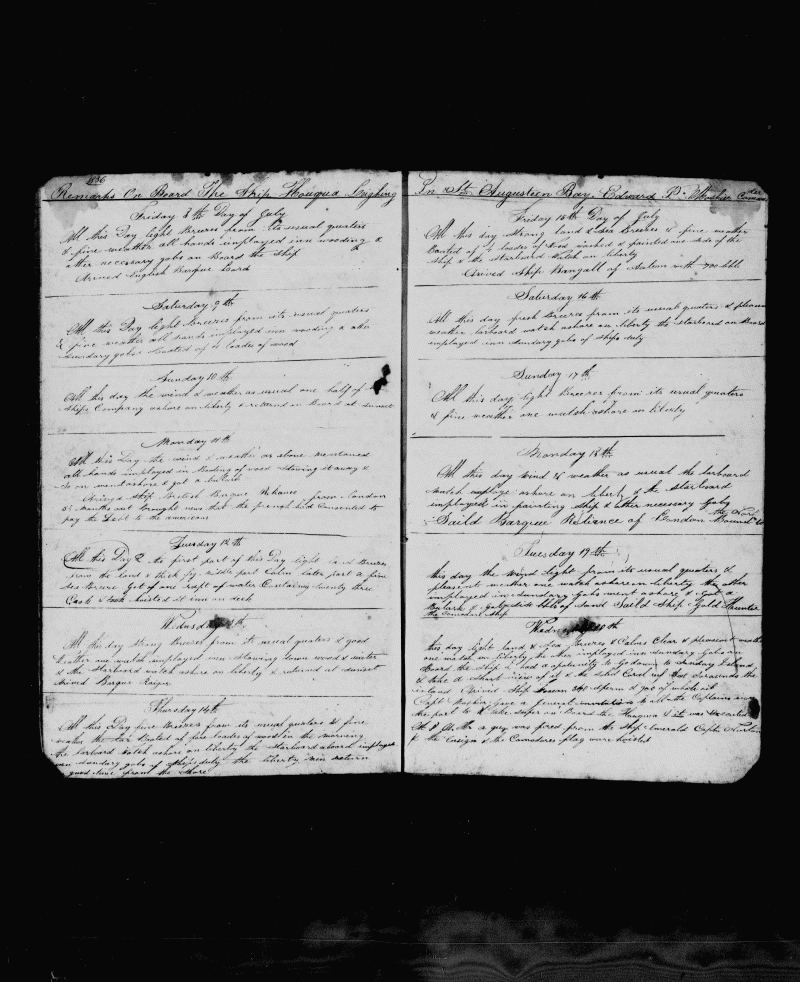 1836
Remarks On Board The Ship Houqua Lighing
Friday 8th Day of July
All this Day light Breezes from its usual quaters
& fine weather all hands imployed inn wooding &
other neccesary gobs on Board the Ship
Arived English Barque
Saturday 9th
All this Day light breezes from its usual quaters
& fine weather all hands imployed inn wooding & other
sundary gobs Boated of 4 loades of wood
Sunday 10th
All this day the wind & weather as usual one half of
Ships Company ashore on liberty & returnd on Board at sunset
Monday 11th
All this Day the wind & weather as above mentioned
all hands imployed in Boating of wood stowing it away &
so on went ashore & got a
Arived Ship British Barque from London
3½ months out brought news that the french had Consented to
pay the Debt to the americans
Tuesday 12th
All this Day & the first part of this Day light Breezes
from the land & thick fog middle part Calm later part a fine
sea Breeze Got of one raft of water Containing twenty three
Cask & took hoisted it inn on deck
Wednsday 13th
All this day strong breezes from its usual quaters & good
weather one watch imployed inn stowing down wood & water
& the Starboard watch ashore on liberty & returned at sunset
Arived Barque
Thursday 14th
All this Day fine Breezes from its usual quaters & fine
weather the Boated of five loades of wood in the morning
the larboard watch ashore on liberty the Starboard aboard imployed
inn sundary gobs of ships duty the liberty men return
in good time from the Shore
In St Augusteen Bay. Edward Comander
Friday 15th Day of July
All this day strong land & sea Breezes & fine weather
Boated of loades of wood washed & painted one side of the
ship & the Starboard Watch on liberty
Arived Ship Bangall of Salem with 700 bbls
Saturday 16th
All this day fresh breezes from its usual quaters & pleasen
weather larboard watch ashore on liberty the starbored on Board
imployed inn sundary gobs of ships duty
Sunday 17th
All this day light Breezes from its usual quaters
& fine weather one watch ashore on liberty
Monday 18th
All this day wind & weather as usual the larboard
watch ashore on liberty & the starboard
imployed in painting Ship & other necessary Gobs
Saild Barque Reliance of London Bound
Tuesday 19th
this day the wind light from its usual quaters &
plesent weather one watch ashore on liberty the other
imployed inn sundary Gobs went ashore & Got a
of sand Saild Ship Gold Hunter
Wednesday 20th
this day light land & Sea Breezes & Calms Clear & plesent weather
one watch on liberty the other imployed inn sundary Gobs on
Board the Ship & had a opertunity to Godown to Sandary Island
& take a Sharp view of it & the Corel reef that Sarounds the
island Arived Ship sperm & 900 of whale oil
Capt gave a general invitation to all the Captains inn
the port to supper on Board the Houqua & it was excepted
At 8 a gun was fired from the Ship Emerald Capt
& the Ensign & the Comodores flag ware hoisted